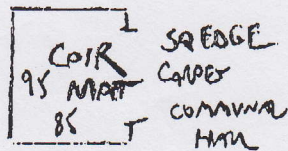 COIR
95 MATT
85
SQ EDGE
CARPET
COMMUNAL
HALL